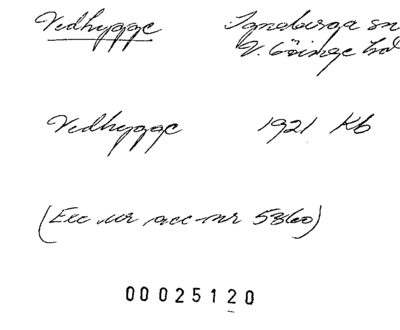 Vedhygge Ignaberga sn
V. Göinge hd
Vedhygge 1921 Kb
(Exc ur acc-nr 5360)
00025120